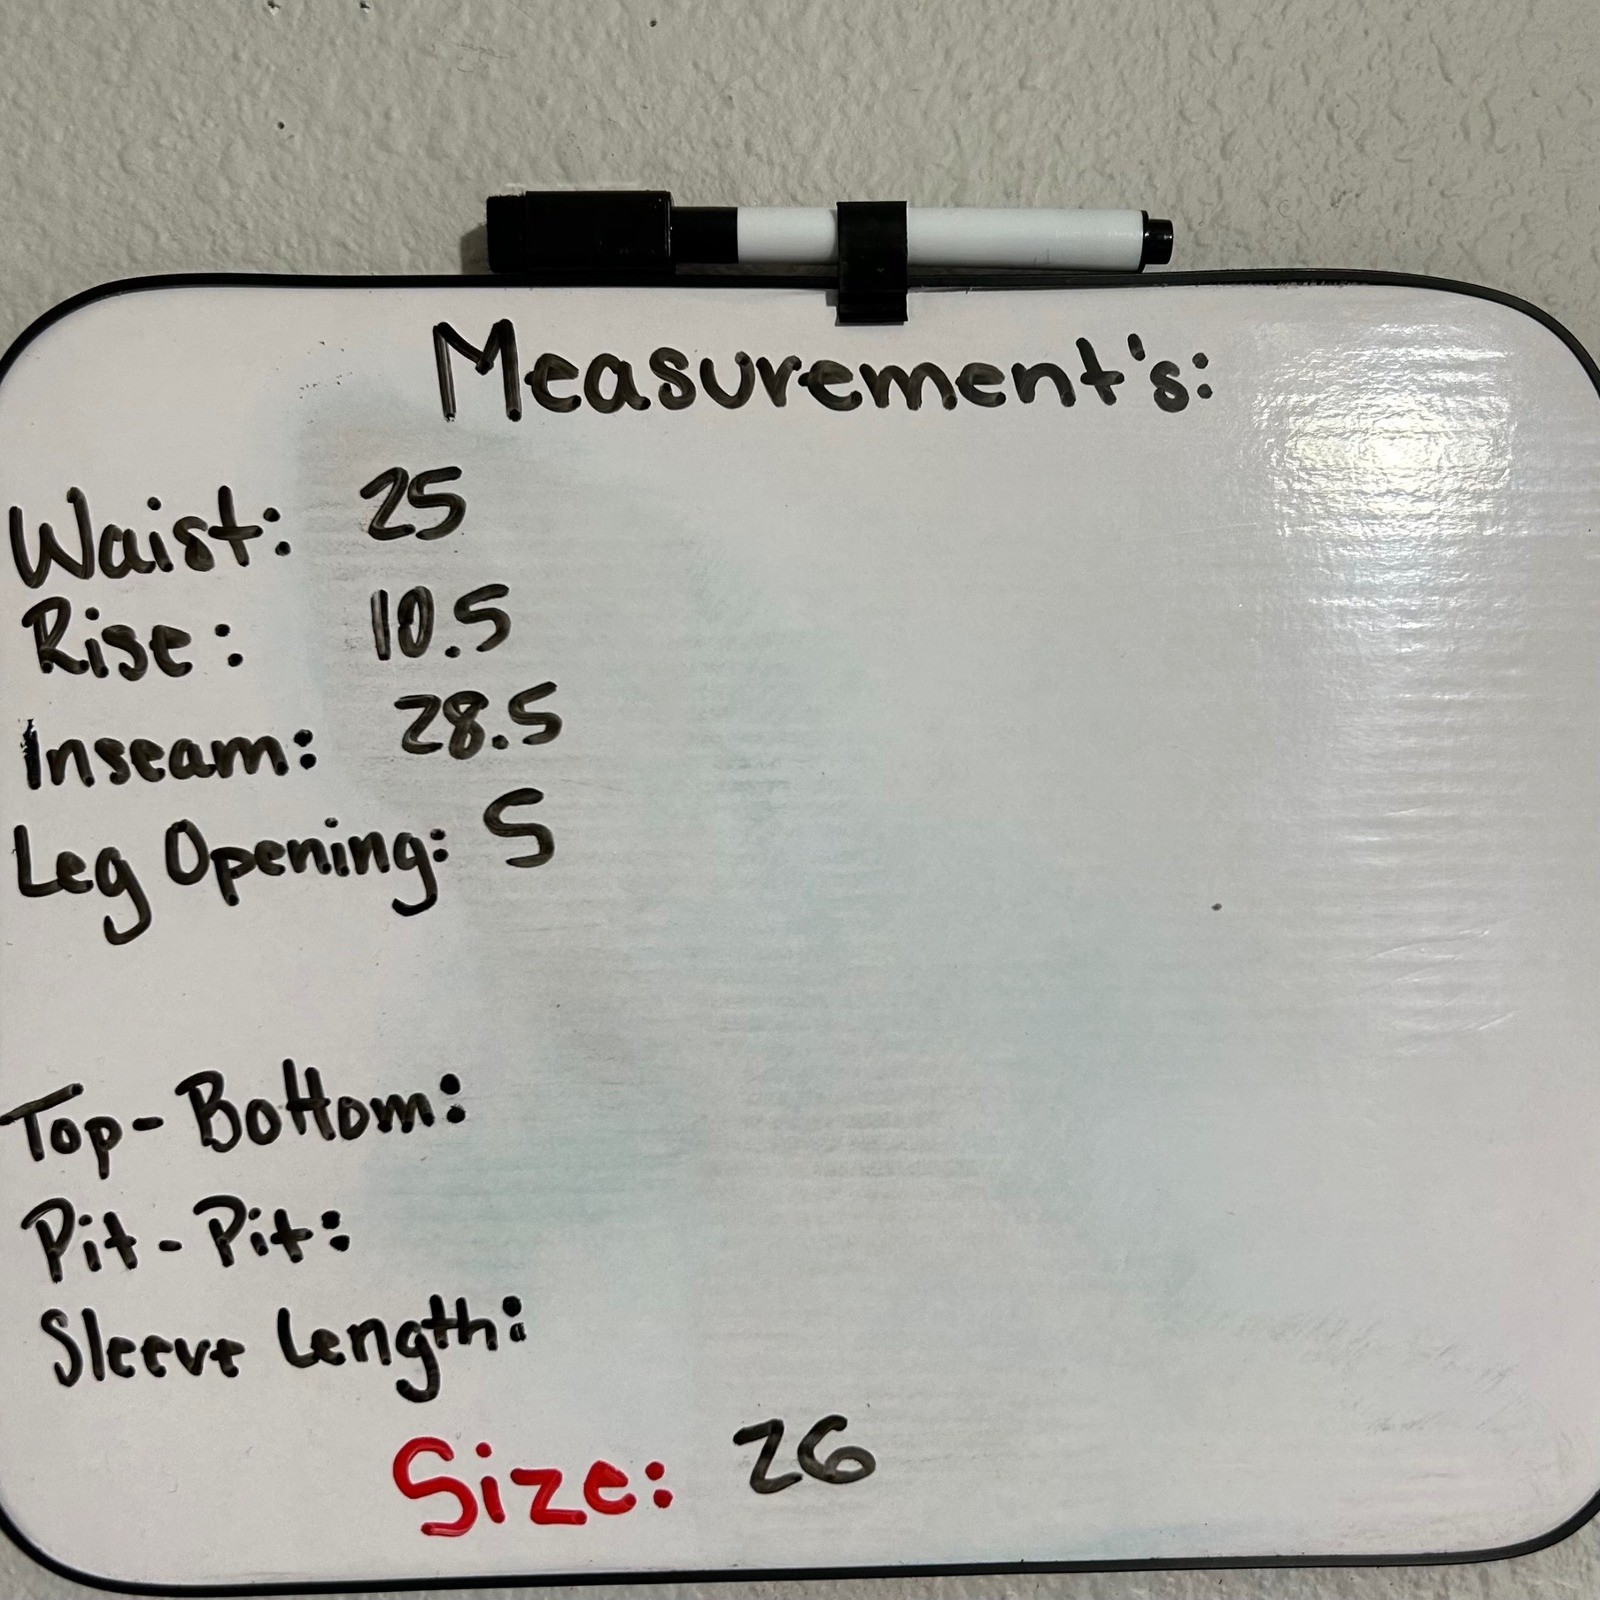 Measurement's:
Waist: 25
Rise: 10.5
Inseam: 28.5
Leg Opening: 5
Top-Bottom:
Pit-Pit:
Sleeve Length:
Size: 26